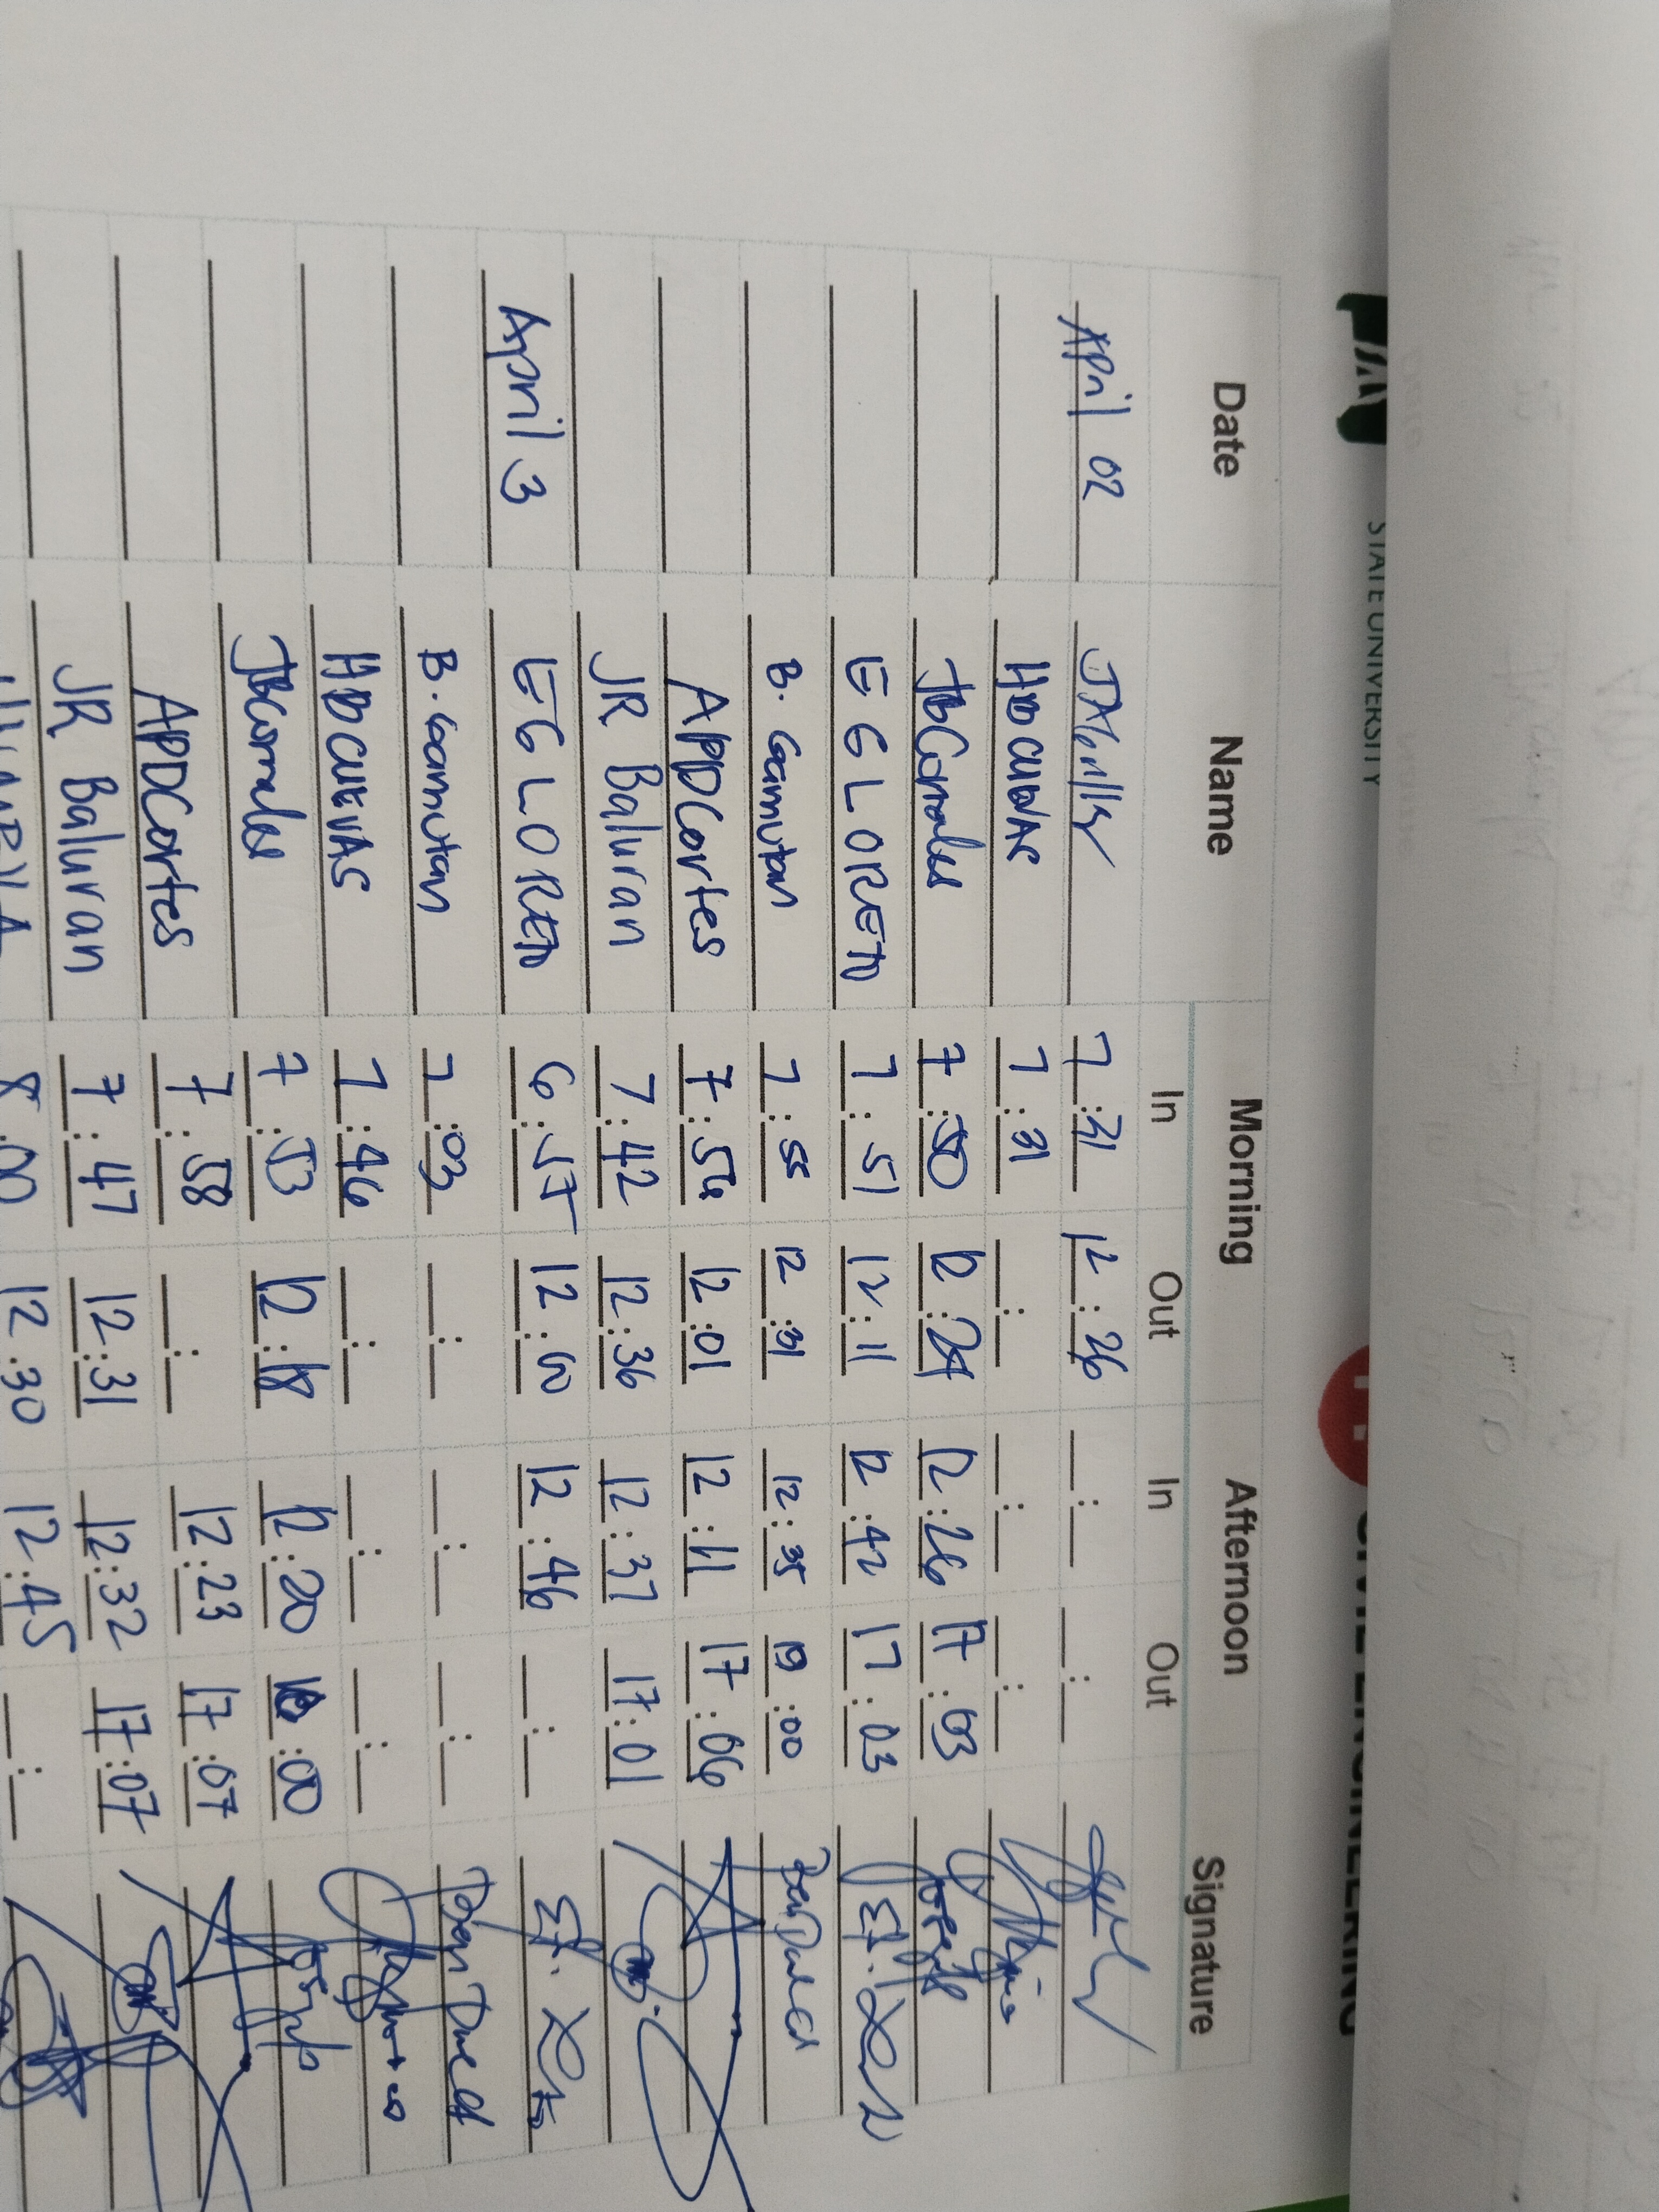 STATE UNIVERSITY
CIVIL ENGINEERING
Date Name Morning Afternoon Signature
In Out In Out
April 02 7:31 12:26
HDCUEVAS 7:31
JBCorrales 7:50 12:24 12:26 17:03
EGLORETO 7:51 12:11 12:42 17:03
B. Gamutan 7:55 12:31 12:35 19:00
APDCortes 7:54 12:01 12:11 17:06
JR Baluran 7:42 12:36 12:37 17:01
April 3 EGLORETO 6:57 12:00 12:46
B. Gamutan 7:03
HDCUEVAS 7:46
JBCorrales 7:53 12:18 12:20 :00
APDCortes 7:58 12:23 17:07
JR Baluran 7:47 12:31 12:32 17:07
8:00 12:30 12:45